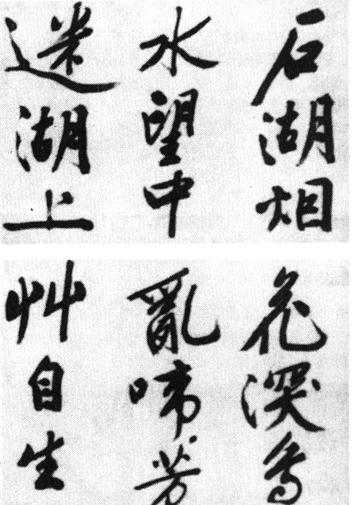 石湖烟
水望中
迷湖上
花深鸟
亂啼芳
艸自生